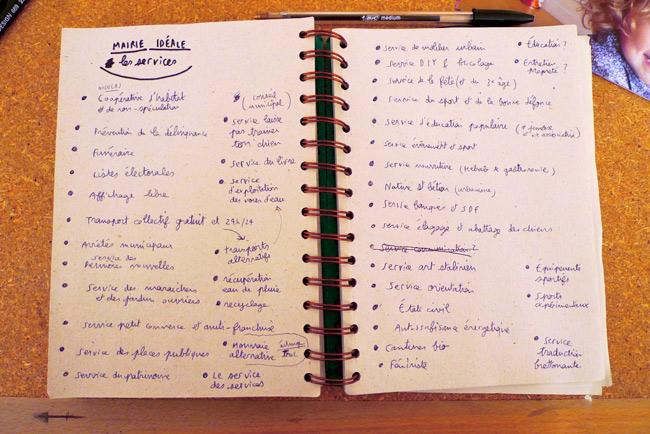 MAIRIE IDÉALE
les services
Coopérative d'habitat
et de non-spéculation
Prévention de la délinquance
Funéraire
Listes électorales
Affichage libre
Transport collectif gratuit et 24h/24
Arrêtés municipaux
service des
Dernières nouvelles
Service des maraichers
et des jardins ouvriers
service petit commerce et anti-franchise
service des places publiques
service du patrimoine
(conseil
municipal)
service laisse
pas trainer
ton chien
service du livre
service
d'exploitation
des voies d'eau
transports
alternatifs
récupération
eau de pluie
recyclage
Monnaie
alternative
Le service
des services
service de mobilier urbain
service DIY & bricolage
service de la fête (et du 3e âge)
service du sport et de la bonne
service d'éducation populaire
service évènement et sport
service nourriture (Kebab & gastronomie)
Nature et béton (urbanisme)
service banques et SDF
service élagage et abattage des chiens
service communication?
service art stalinien
service orientation
État civil
Autosuffisance énergétique
Cantines bio
Éducation?
Entretien
Propreté?
Équipements
sportifs
Sports
expérimentaux
service
traduction
brettonante
BIC medium